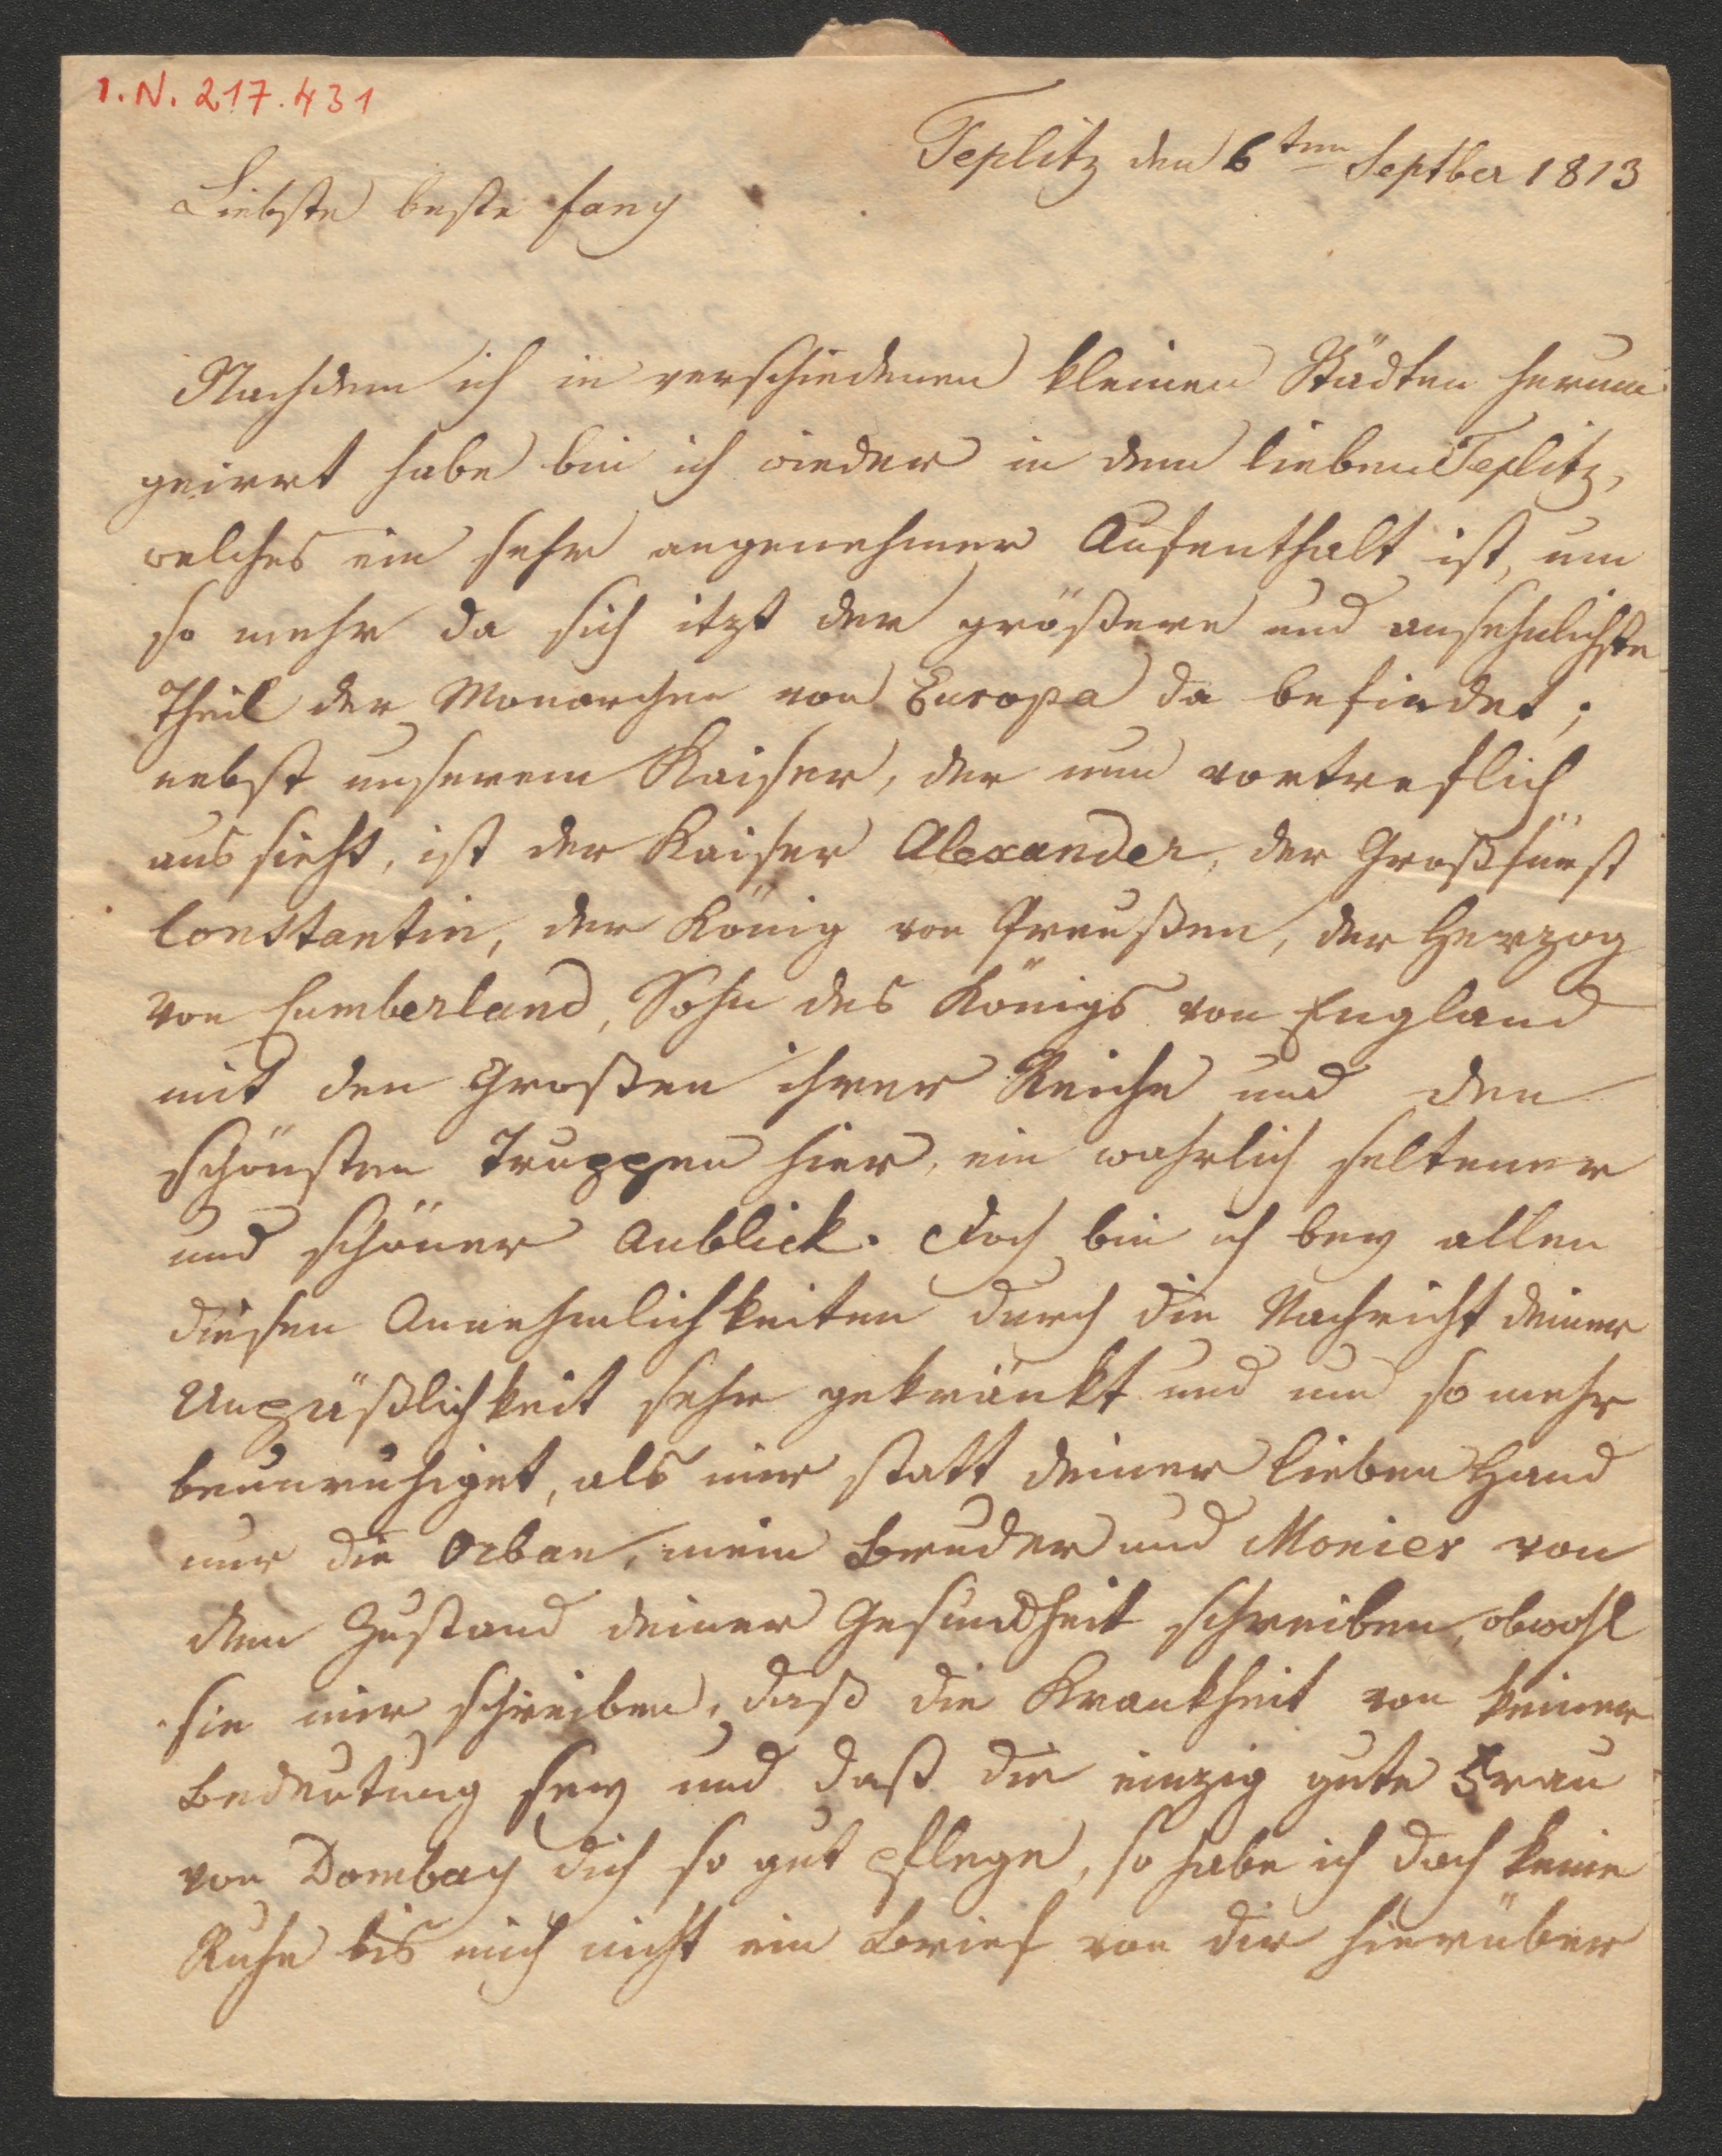 I.N. 217.431
Teplitz den 6ten Septber 1813
Liebste beste Fany
Nachdem ich in verschiedenen kleinen Städten herum
geirrt habe bin ich wieder in dem lieben Teplitz,
welches ein sehr angenehmer Aufenthalt ist, um
so mehr da sich itzt der größere und ansehnlichste
Theil der Monarchen von Europa da befindet;
nebst unserem Kaiser, der nun vortreflich
aus sieht, ist der Kaiser Alexander, der Großfürst
Constantin, der König von Preußen, der Herzog
von Cumberland, Sohn des Königs von England
mit den Großen ihrer Reiche und den
schönsten Truppen hier, ein wahrlich seltener
und schöner Anblick. Doch bin ich bey allen
diesen Annehmlichkeiten durch die Nachricht deiner
Unpäßlichkeit sehr gekränkt und um so mehr
beunruhiget, als mir statt deiner lieben Hand
nur die Orban, mein Bruder und Monier von
dem Zustand deiner Gesundheit schreiben, obwohl
sie mir schreiben, daß die Krankheit von keiner
Bedeutung sey und daß die einzig gute Frau
von Dombay dich so gut pflege, so habe ich doch keine
Ruhe bis mich nicht ein Brief von dir hierüber